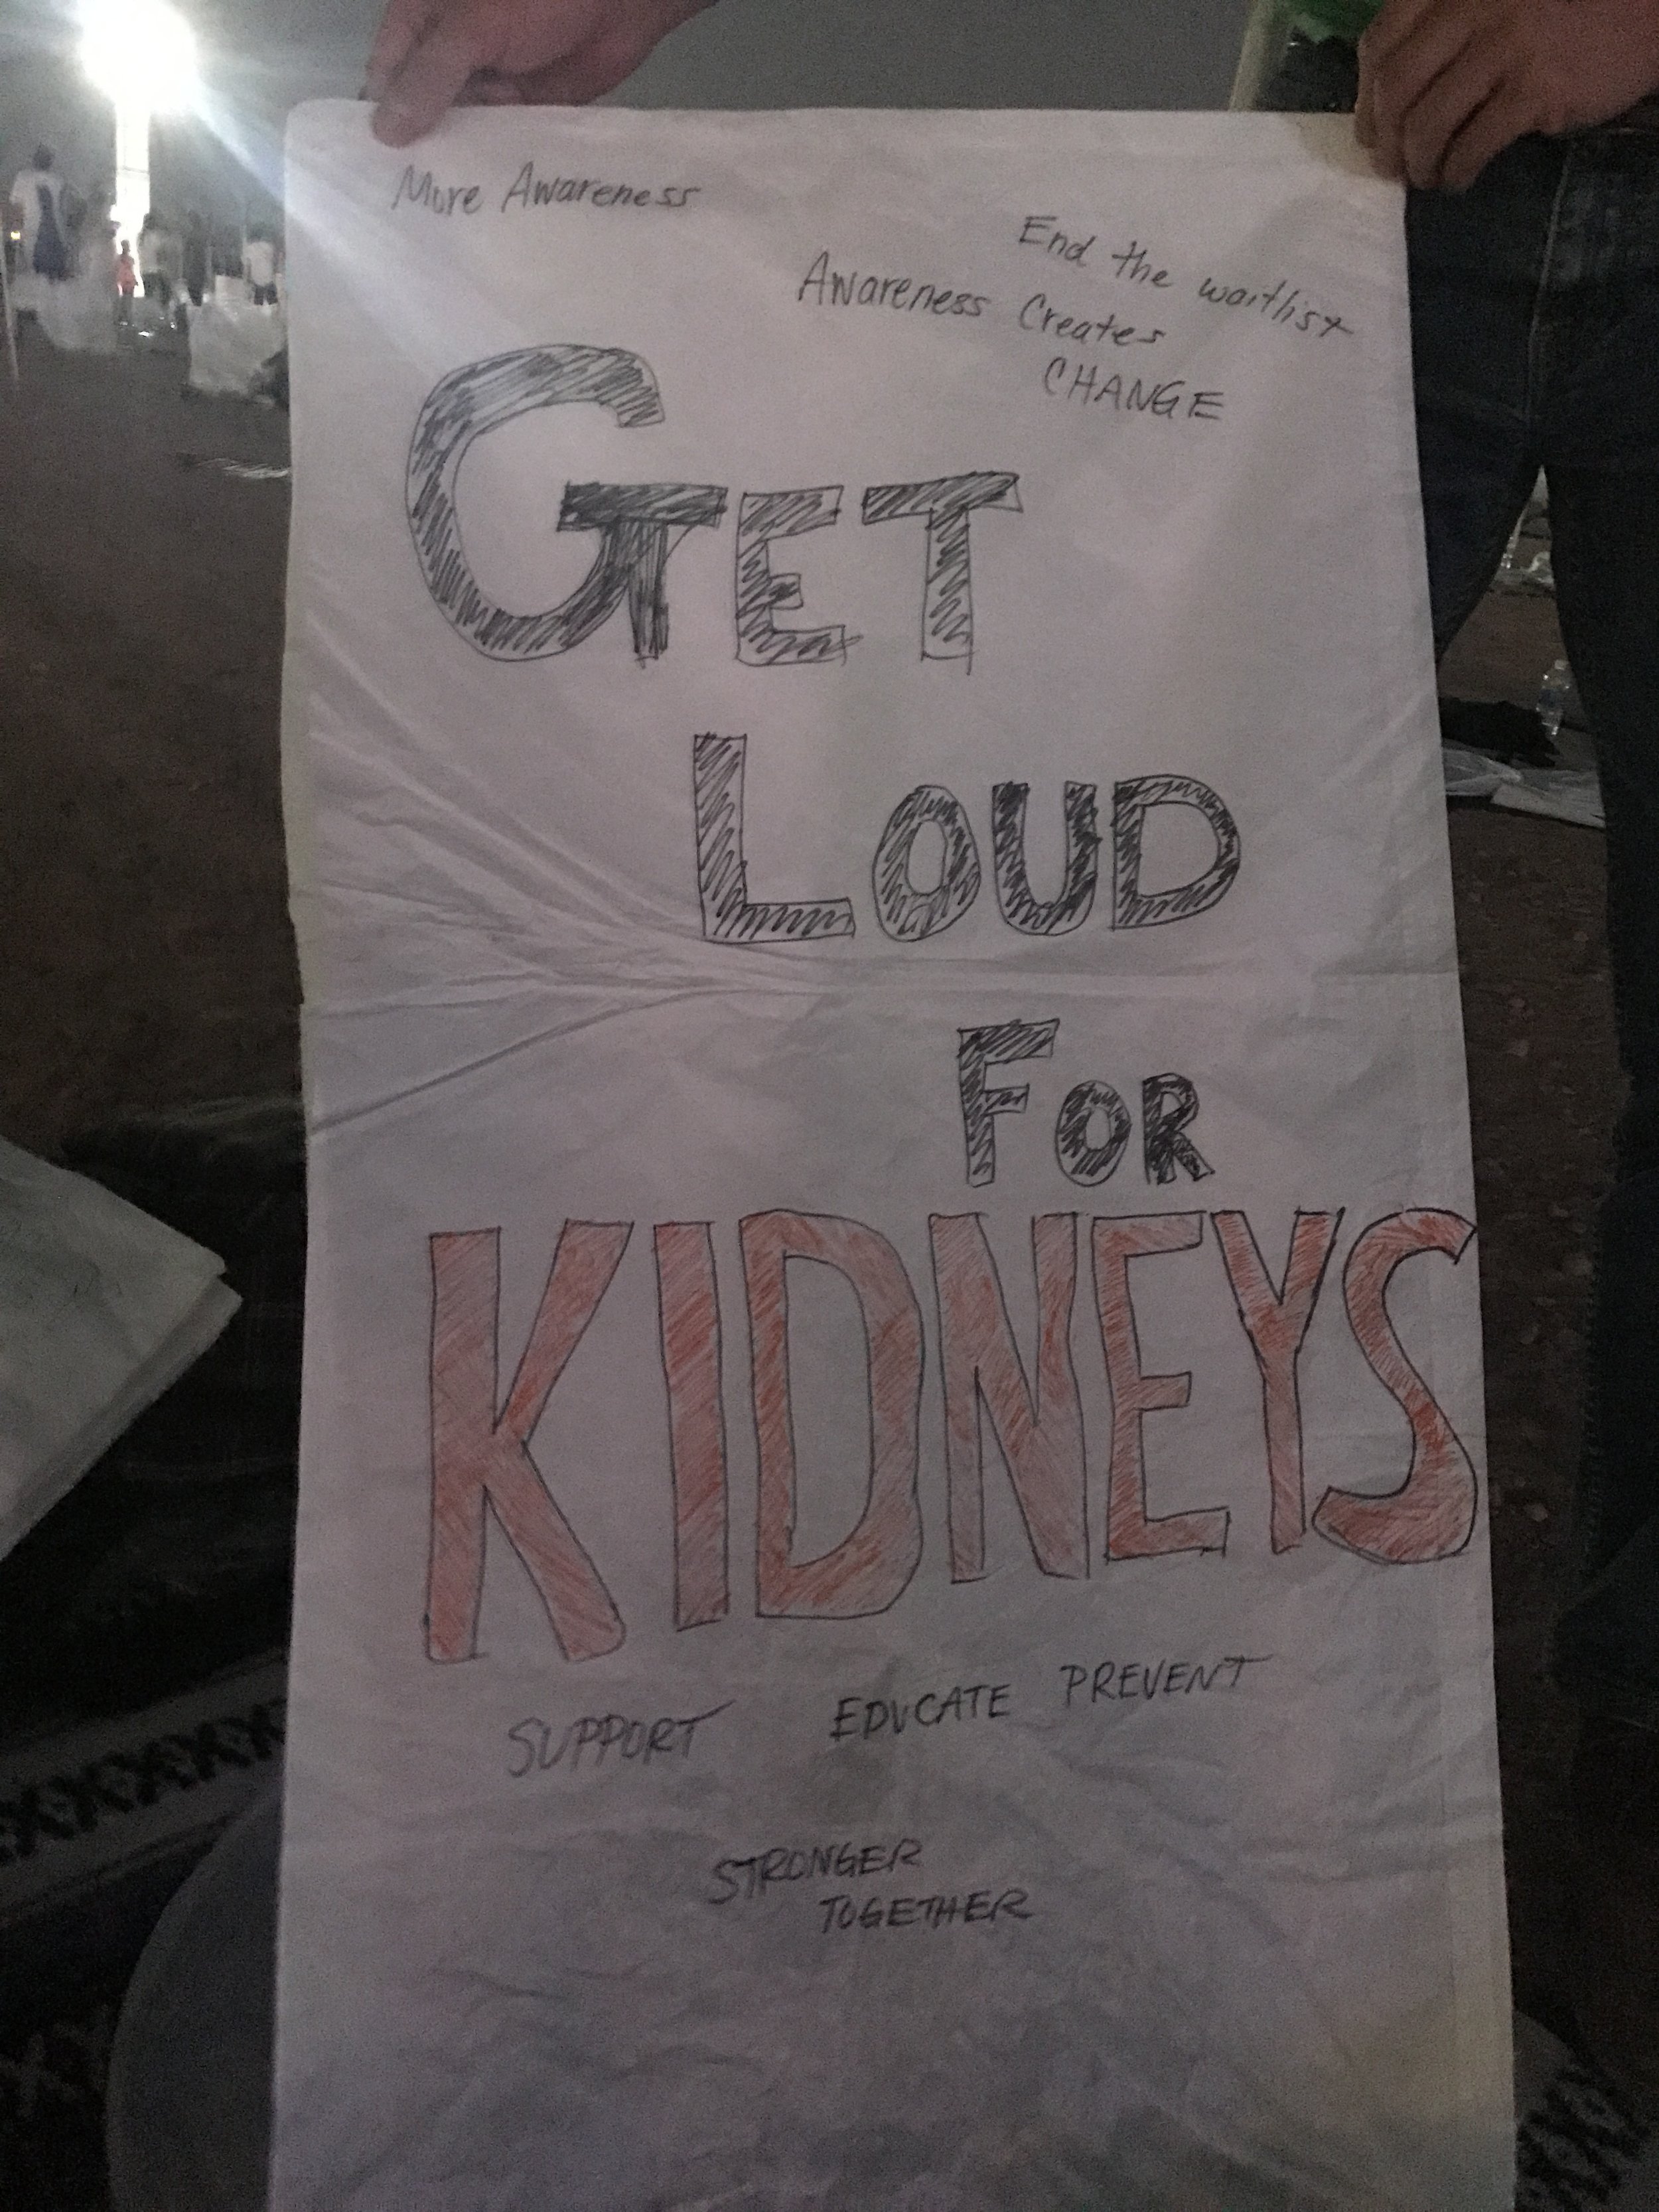 More Awareness
End the waitlist
Awareness Creates
CHANGE
GET
LOUD
FOR
KIDNEYS
SUPPORT EDUCATE PREVENT
STRONGER
TOGETHER